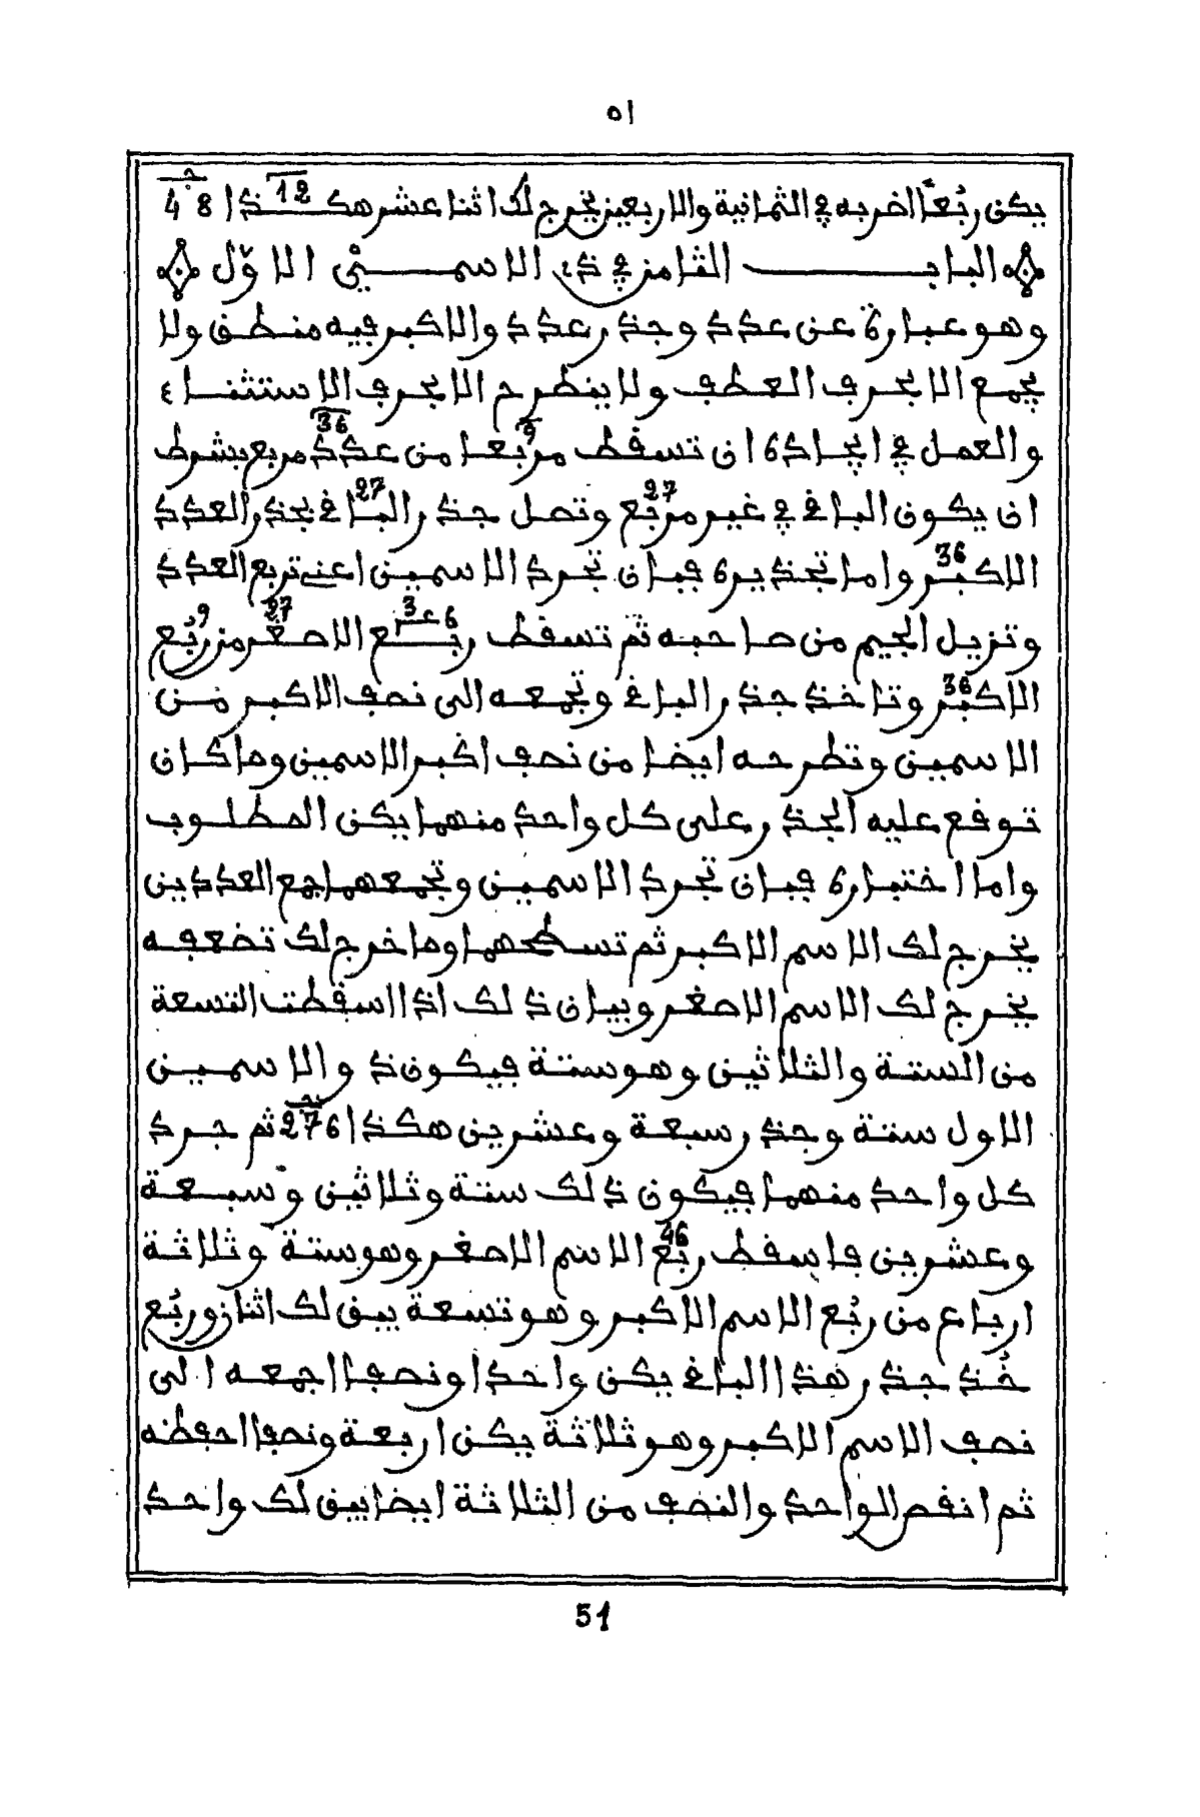 ٥١
يكن ربُعًا اضربه في الثمانية والاربعين يخرج لك اثنا عشر هكذا 12 48
الباب الثامن في ذي الاسمين الاوّل
وهو عبارة عن عدد وجذر عدد والاكبر فيه منطق ولا
يجمع الا بحرف العطف ولا ينطرح الا بحرف الاستثناء
والعمل في ايجاده ان تسقط مربعا 9 من عدد 36 مربع بشرط
ان يكون الباقي في غير مربع 27 وتصل جذر الباقي 27 بجذر العدد
الاكبر 36 واما تجذيره فبان تجرد الاسمين اعني تربع العدد
وتزيل الجيم من صاحبه ثم تسقط ربع 6 3/4 الاصغر 27 من ربُع 9
الاكبر 36 وتاخذ جذر الباقي وتجمعه الى نصف الاكبر من
الاسمين وتطرحه ايضا من نصف اكبر الاسمين وما كان
توقع عليه الجذر على كل واحد منهما يكن المطلوب
واما اختباره فبان تجرد الاسمين وتجمعهما جمع العددين
يخرج لك الاسم الاكبر ثم تسطحهما وما خرج لك تضعفه
يخرج لك الاسم الاصغر وبيان ذلك اذا اسقطت التسعة
من الستة والثلاثين وهو ستة فيكون ذو الاسمين
الاول ستة وجذر سبعة وعشرين هكذا 6 27 ثم جرد
كل واحد منهما فيكون ذلك ستة وثلاثين وسبعة
وعشرين فاسقط ربُع 46 الاسم الاصغر وهو ستة وثلاثة
ارباع من ربُع الاسم الاكبر وهو تسعة يبق لك اثنان وربُع
خُذ جذر هذا الباقي يكن واحدا ونصفا اجمعه الى
نصف الاسم الاكبر وهو ثلاثة يكن اربعة ونصفا احفظه
ثم انقص الواحد والنصف من الثلاثة ايضا يبق لك واحد
51